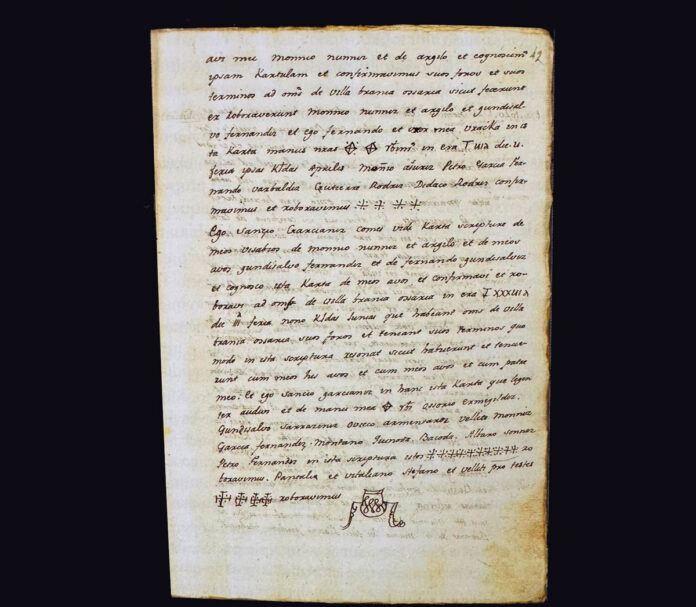 avi meu monnio nunniz et de argilo et cognosium 42
ipsam Kartulam et confirmavimus suos foros et suos
terminos ad oms de villa brania ossaria sicut fecerunt
et roboraverunt monnio nunniz et argilo et gundisal-
vo fernandez et ego fernando et uxor mea Uracka in is
ta Karta manus nras in era die
feria ipsas Klds Aprilis Petro Garcia fer-
nando Gutierro Rodriz Didaco Rodriz confir-
mavimus et roboravimus
Ego Sanzio Garcianiz comes vide Karta scripture de
meos visabios de monnio nunniz et argilo et de meos
avos gundisalvo fernandez et de fernando gundesalviz
et cognosco ista Karta de meos avos et confirmavi et ro-
boravi ad oms de villa brania ossaria in era
die feria nono Klds Junias que habeant oms de villa
brania ossaria suos foros et teneant suos terminos quo
modo in ista scriptura resonat sicut habuerunt et tenue-
runt cum meos bis avos et cum meos avos et cum patre
meo. Et ego Sancio garcianiz in hanc ista Karta que legen
ter audivi et de manu mea Ossorio Ermegildiz.
Gundisalvo Sarraziniz Oveco armentariz Velliti monnioz
Garcia fernandez. Montano Bacoda. Albaro
Petro Fernandez in ista scriptura istos ro
boravimus. Pantalia et vitaliano Stefano et velliti pro testes
roboravimus